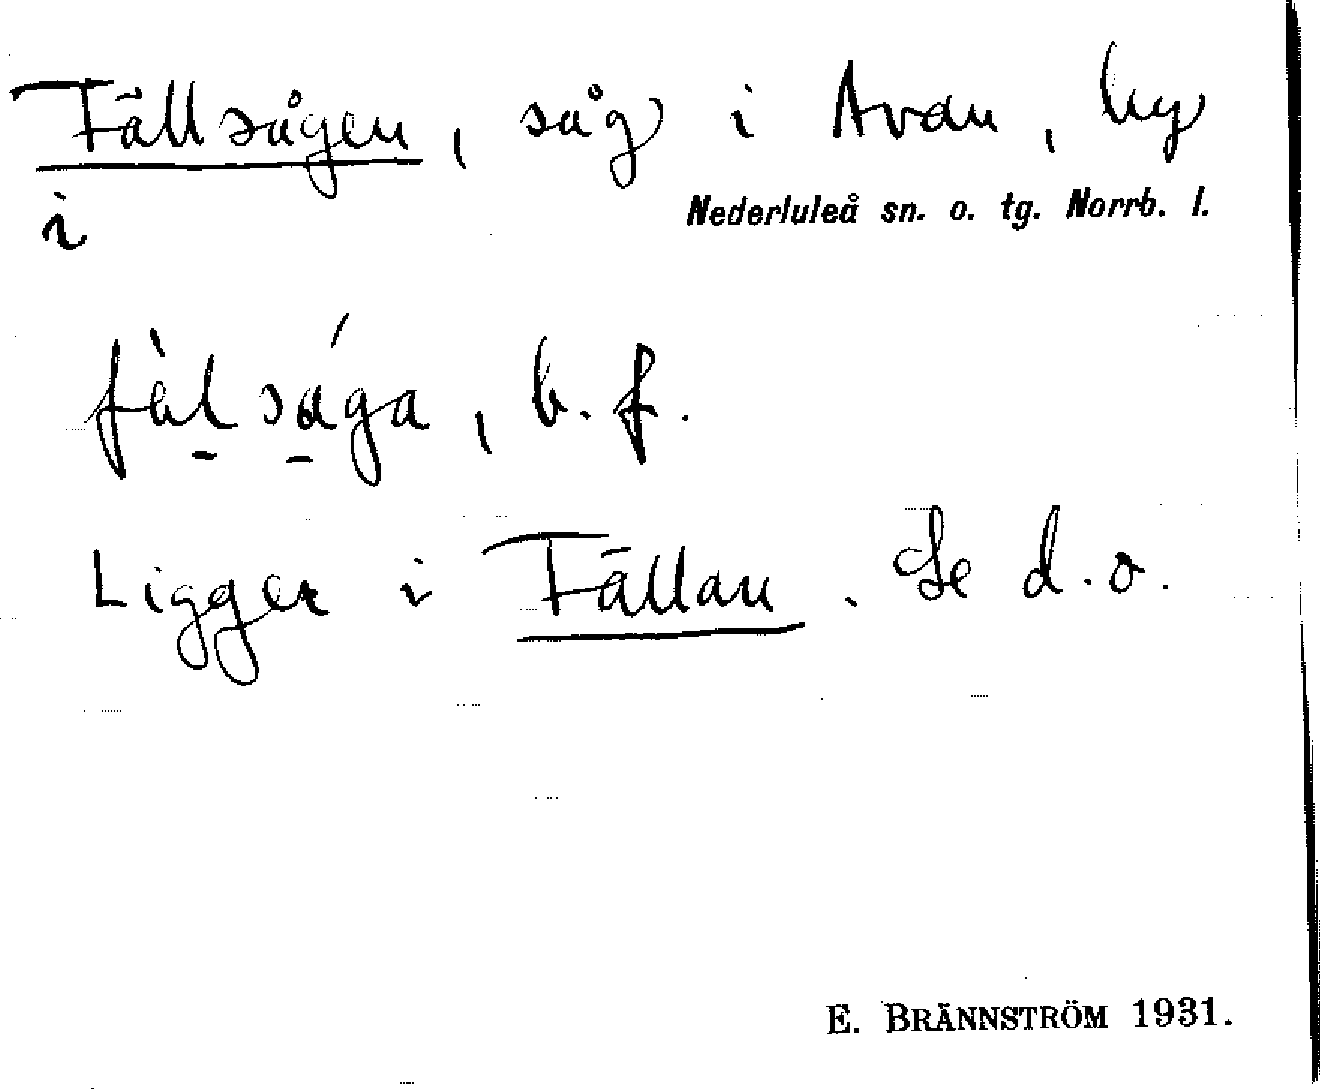 Fällsågen, såg i Avan, by
i Nederluleå sn. o. tg. Norrb. l.
fä̀lsá̄ga, b. f.
Ligger i Fällan. Se d.o.
E. BRÄNNSTRÖM 1931.